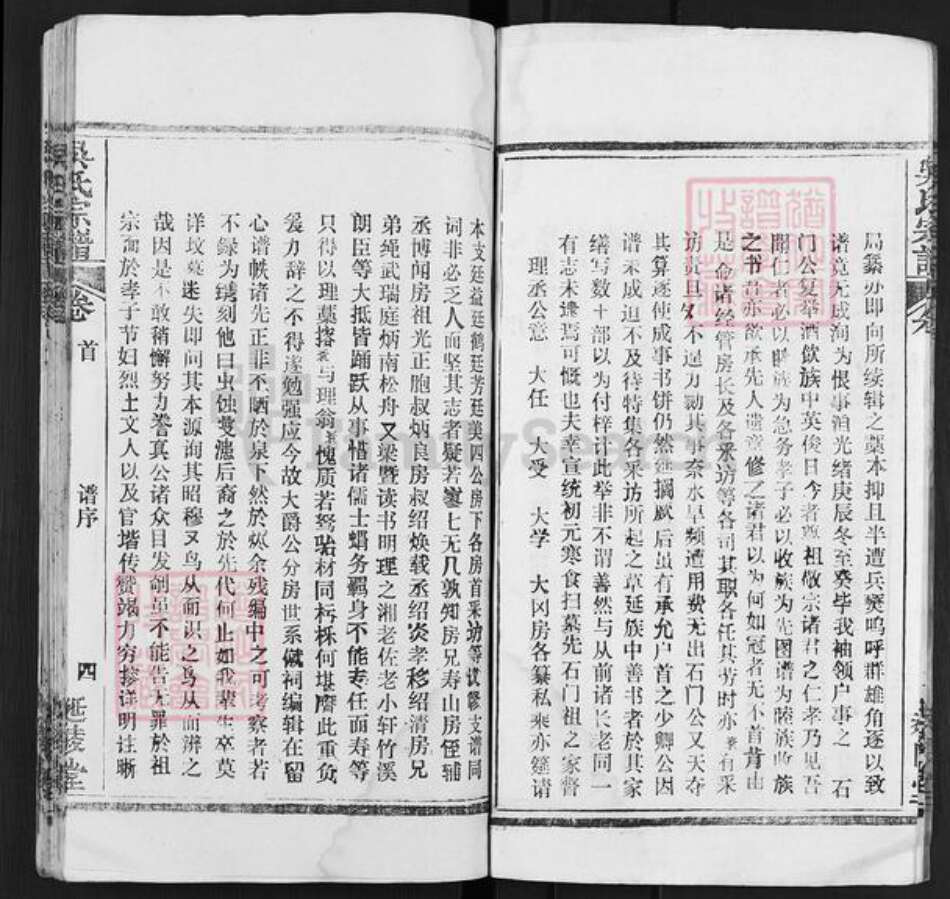 吴氏宗谱
局纂亦即向所续辑之藁本抑且半遭兵燹呜呼群雄角逐以致
谱竟无成洵为恨事洎光绪庚辰冬至祭毕我袖领户事之 石
门公复举酒飲族中英俊曰今者尊祖敬宗诸君之仁孝乃见吾
闻仁者必以睦族为急务孝子必以收族为先图谱为睦族收族
之书吾亦欲承先人遗意修之诸君以为何如冠者无不首肯由
是佥诸经管房长及各采访等各司其职各任其劳时亦 有采
访 且 不遑力勷其事奈水旱频遭用费无出石门公又天夺
其算遂使成事书饼仍然烂搁厥后虽有承允户首之少卿公因
谱未成迫不及待特集各采访所起之草延族中善书者於其家
缮写数十部以为付梓计此举非不谓善然与从前诸长老同一
有志未逮焉可慨也夫幸宣统初元寒食扫墓先石门祖之家督
理丞公意 大任 大受 大学 大冈房各纂私乘亦筵请
本支廷益廷鹤廷芳廷美四公房下各房首采访等议修支谱同
词非必乏人而坚其志者疑若寥七无几孰知房兄寿山房侄辅
丞博闻房祖光正胞叔炳良房叔绍焕载丞绍炎孝移绍清房兄
弟绳武瑞庭炳南松舟又梁暨读书明理之湘老佐老小轩竹溪
朗臣等大抵皆踊跃从事惜诸儒士蝟务羁身不能专任而寿等
只得以理藁撘 与理翁 愧质若驽骀材同朽株何堪膺此重负
爰力辞之不得遂勉强应今故大爵公分房世系俶祠编辑在留
心谱帙诸先正非不晒於泉下然於烬余残编中之可考察者若
不録为琇刻他日虫蚀漫漶后裔之於先代何止如我辈生卒莫
详坟 迷失即问其本源询其昭穆又鸟从而识之鸟从而辨之
哉因是不敢稍懈努力誊真公诸众目发剞虽不能告无罪於祖
宗而於孝子节妇烈士文人以及官堦传赞竭力穷搜详明注晰
吴氏宗谱 卷 首 谱序 四 延陵堂